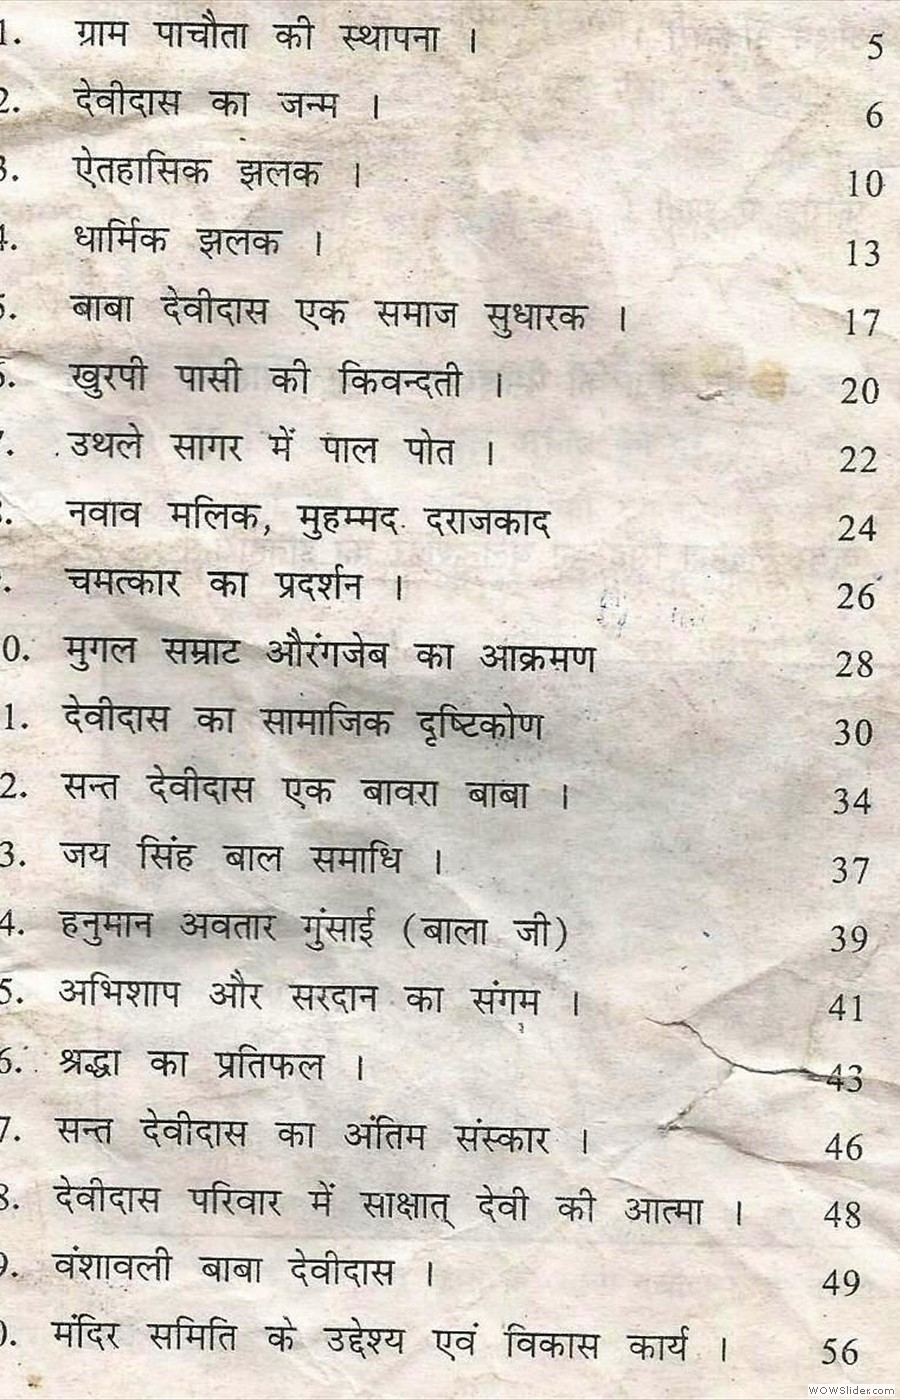 1. ग्राम पाचौता की स्थापना । 5
2. देवीदास का जन्म । 6
3. ऐतहासिक झलक । 10
4. धार्मिक झलक । 13
5. बाबा देवीदास एक समाज सुधारक । 17
6. खुरपी पासी की किवन्दती । 20
7. उथले सागर में पाल पोत । 22
8. नवाव मलिक, मुहम्मद दराजकाद 24
9. चमत्कार का प्रदर्शन । 26
0. मुगल सम्राट औरंगजेब का आक्रमण 28
1. देवीदास का सामाजिक दृष्टिकोण 30
2. सन्त देवीदास एक बावरा बाबा । 34
3. जय सिंह बाल समाधि । 37
4. हनुमान अवतार गुंसाई (बाला जी) 39
5. अभिशाप और सरदान का संगम । 41
6. श्रद्धा का प्रतिफल । 43
7. सन्त देवीदास का अंतिम संस्कार । 46
8. देवीदास परिवार में साक्षात् देवी की आत्मा । 48
9. वंशावली बाबा देवीदास । 49
0. मंदिर समिति के उद्देश्य एवं विकास कार्य । 56
WOWSlider.com